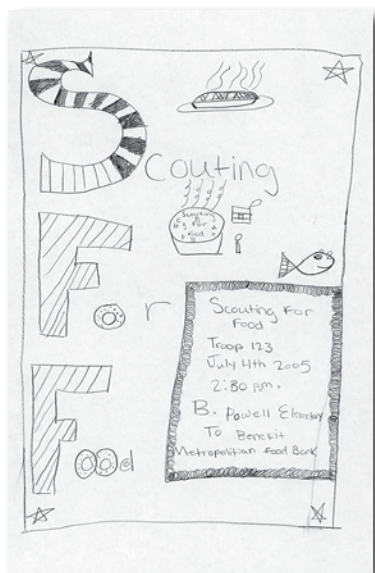 Scouting
Scouting
for
Food
For
Scouting For
Food
Troop 123
July 4th 2005
2:30 pm.
B. Powell Elementary
To Benefit
Metropolitian Food Bank
Food